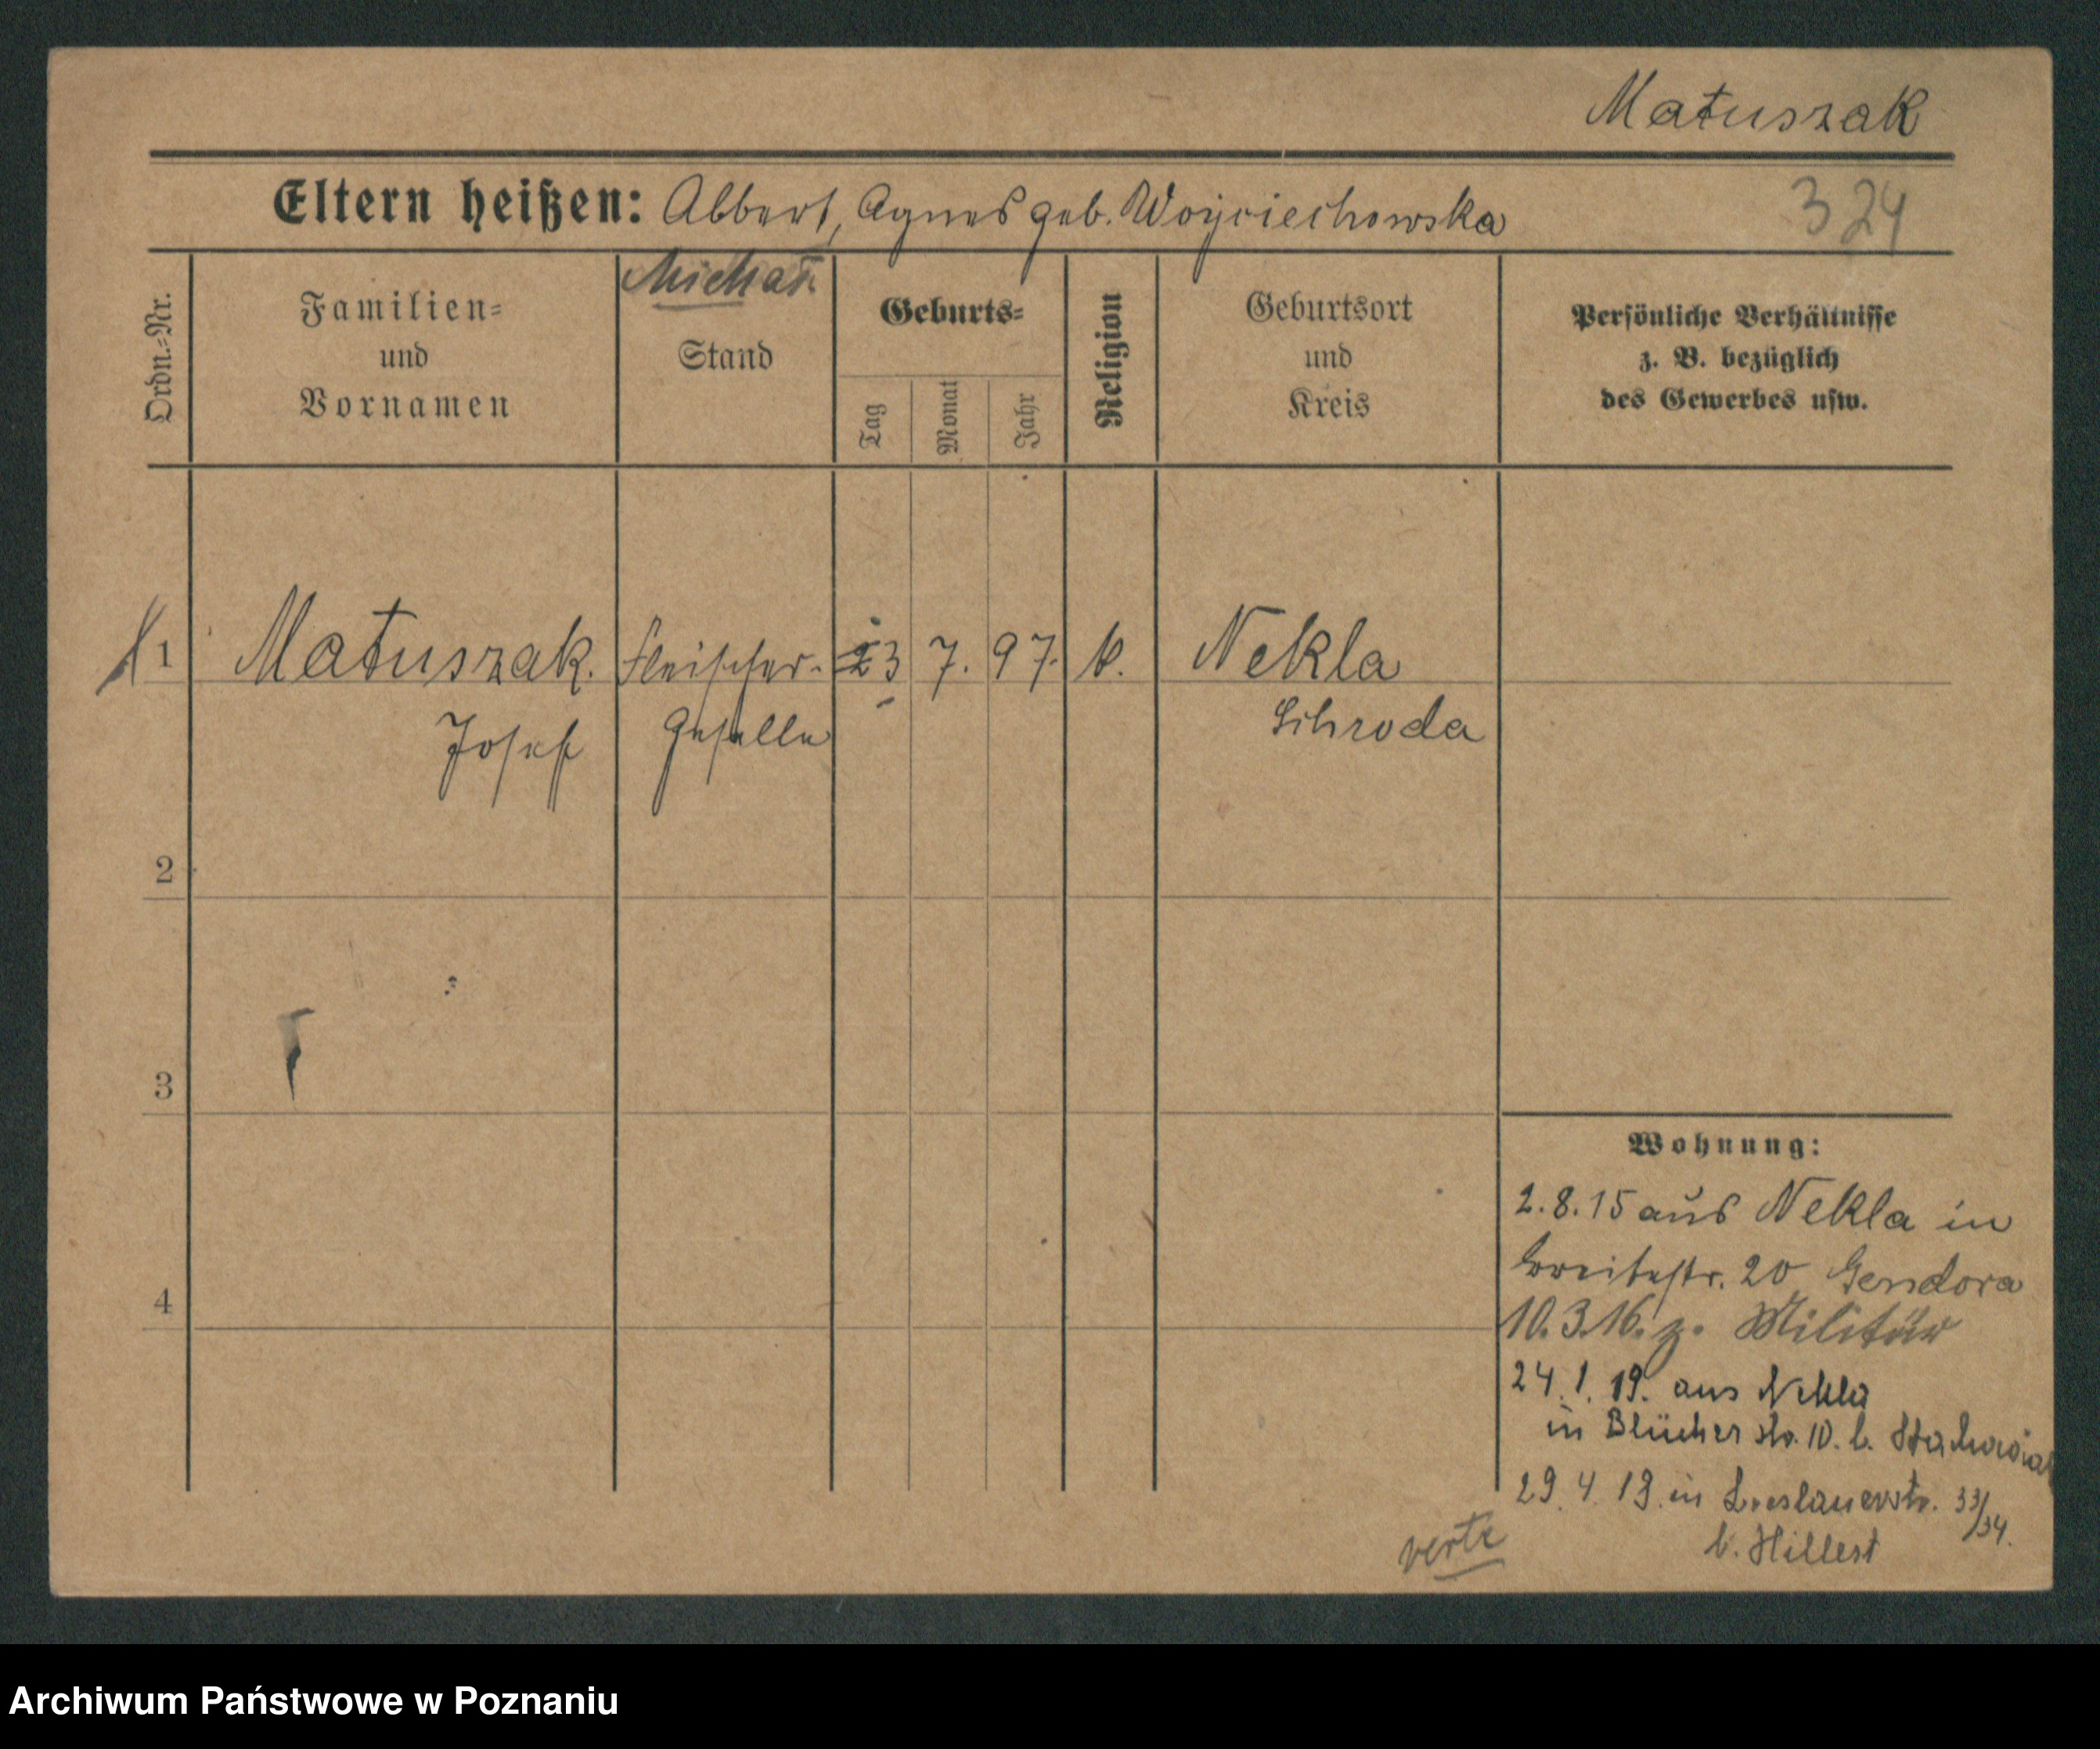 Matuszak
Eltern heißen: Albert, Agnes geb. Woyciechowska
324
Michał
Ordn.=Nr.
Familien=
und
Vornamen
Stand
Geburts=
Tag
Monat
Jahr
Religion
Geburtsort
und
Kreis
Persönliche Verhältnisse
z. B. bezüglich
des Gewerbes usw.
1 Matuszak. Fleischer- 23 7. 97. k. Nekla
Josef Geselle Schroda
2
3
4
Wohnung:
2.8.15 aus Nekla in
Breitestr. 20 Gendora
10.3.16. z. Militär
24.1.19. aus Nekla
in Blücherstr. 10. b.
29.4.19. in Breslauerstr. 33/34.
b. Hillert
verte
Archiwum Państwowe w Poznaniu